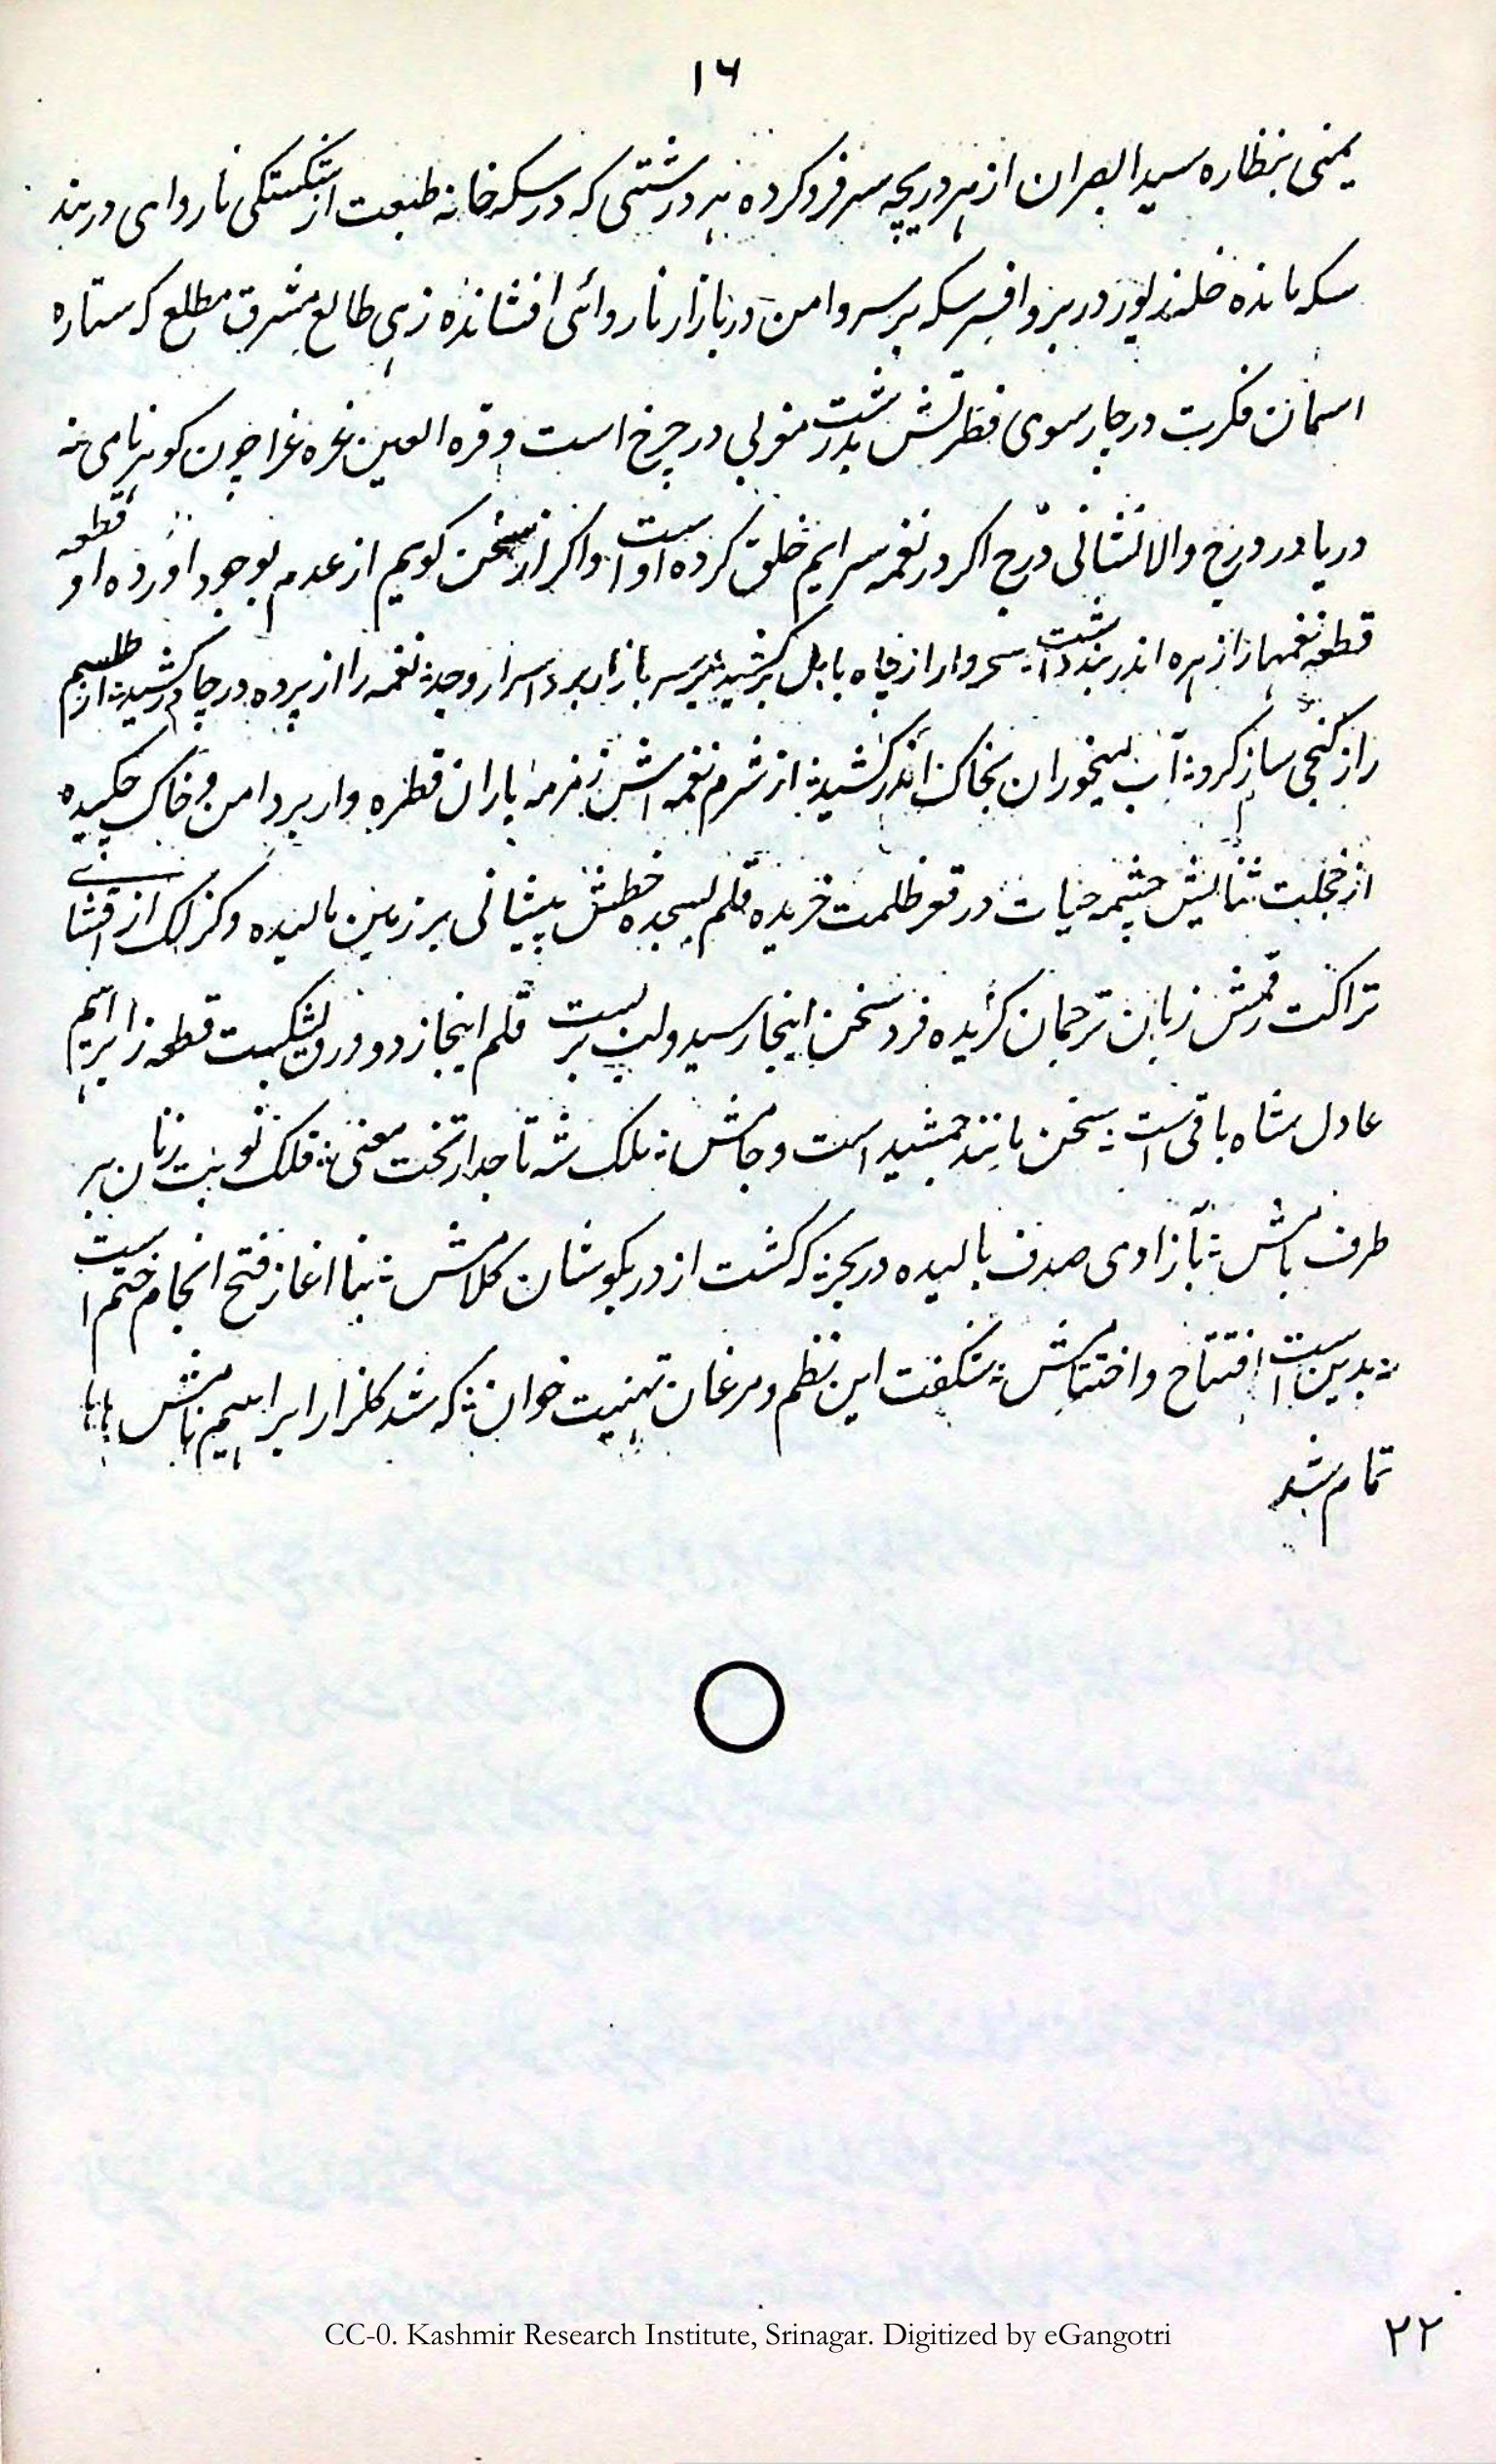 ۱۶
یمنی بنظاره سید البصران از هر دریچه سر فرو کرده هر درشتی که در سکه خانه طبیعت از شکستگی ناروای در بند
سکه مانده خلد زیور در بر و افسر سکه بر سر و امن در بازار ناروائی افشانده زهی طالع مشرق مطلع که ستاره
اسمان فکرت در چار سوی فطرتش بدرشت مغربی در چرخ است و قره العین غره غرا چون کوهر نامی نه
دریا در درج والا نشانی درج اکر در نغمه سرایم خلق کرده اوست واکر از سخن کویم از عدم بوجود آورده او قطعه
قطعه نغمها را زهره اندر بند داشت سحروار از چاه بابل بر کشید بر سر بازار برد اسرار وجد نغمه را از پرده در چادر کشید از طلسم
راز کنجی ساز کرد آب میخوران بخاک اندر کشید از شرم نغمه اش زمزمه باران قطره وار بر دامن خاک چکیده
از خجلت ثنایش چشمه حیات در قعر ظلمت خزیده قلم بسجده خطش پیشانی بر زمین مالیده وکزلک از افشای
نزاکت رقمش زبان ترجمان کزیده فرد سخن اینجا رسید و لب بر بست قلم اینجا زد و ورق بشکست قطعه ز ابراهیم
عادل شاه باقی است سخن مانند جمشید است و جامش ملک شه تاجدار تخت معنی فلک نوبت زنان بر
طرف بامش بآزادی صدف بالیده در بحر که کشت از در بکوشان کلامش بنا اغاز فتح انجام ختم است
بدین است افتتاح و اختتامش شکفت این نظم و مرغان تهنیت خوان که شد کلزار ابراهیم نامش
تمام شد
CC-0. Kashmir Research Institute, Srinagar. Digitized by eGangotri
۲۲